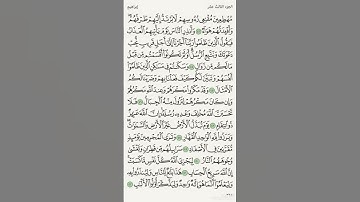 الجزء الثالث عشر إبراهيم
مُهْطِعِينَ مُقْنِعِي رُءُوسِهِمْ لَا يَرْتَدُّ إِلَيْهِمْ طَرْفُهُمْ
وَأَفْـِٔدَتُهُمْ هَوَآءٌ ٤٣ وَأَنذِرِ ٱلنَّاسَ يَوْمَ يَأْتِيهِمُ ٱلْعَذَابُ
فَيَقُولُ ٱلَّذِينَ ظَلَمُوا۟ رَبَّنَآ أَخِّرْنَآ إِلَىٰٓ أَجَلٍ قَرِيبٍ نُّجِبْ
دَعْوَتَكَ وَنَتَّبِعِ ٱلرُّسُلَ أَوَلَمْ تَكُونُوٓا۟ أَقْسَمْتُم مِّن قَبْلُ
مَا لَكُم مِّن زَوَالٍ ٤٤ وَسَكَنتُمْ فِي مَسَـٰكِنِ ٱلَّذِينَ ظَلَمُوٓا۟
أَنفُسَهُمْ وَتَبَيَّنَ لَكُمْ كَيْفَ فَعَلْنَا بِهِمْ وَضَرَبْنَا لَكُمُ
ٱلْأَمْثَالَ ٤٥ وَقَدْ مَكَرُوا۟ مَكْرَهُمْ وَعِندَ ٱللَّهِ مَكْرُهُمْ
وَإِن كَانَ مَكْرُهُمْ لِتَزُولَ مِنْهُ ٱلْجِبَالُ ٤٦ فَلَا
تَحْسَبَنَّ ٱللَّهَ مُخْلِفَ وَعْدِهِۦ رُسُلَهُۥٓ إِنَّ ٱللَّهَ عَزِيزٌ
ذُو ٱنتِقَامٍ ٤٧ يَوْمَ تُبَدَّلُ ٱلْأَرْضُ غَيْرَ ٱلْأَرْضِ وَٱلسَّمَـٰوَٰتُ
وَبَرَزُوا۟ لِلَّهِ ٱلْوَٰحِدِ ٱلْقَهَّارِ ٤٨ وَتَرَى ٱلْمُجْرِمِينَ يَوْمَئِذٍ
مُّقَرَّنِينَ فِي ٱلْأَصْفَادِ ٤٩ سَرَابِيلُهُم مِّن قَطِرَانٍ وَتَغْشَىٰ
وُجُوهَهُمُ ٱلنَّارُ ٥٠ لِيَجْزِيَ ٱللَّهُ كُلَّ نَفْسٍ مَّا كَسَبَتْ
إِنَّ ٱللَّهَ سَرِيعُ ٱلْحِسَابِ ٥١ هَـٰذَا بَلَـٰغٌ لِّلنَّاسِ وَلِيُنذَرُوا۟ بِهِۦ
وَلِيَعْلَمُوٓا۟ أَنَّمَا هُوَ إِلَـٰهٌ وَٰحِدٌ وَلِيَذَّكَّرَ أُو۟لُوا۟ ٱلْأَلْبَـٰبِ ٥٢